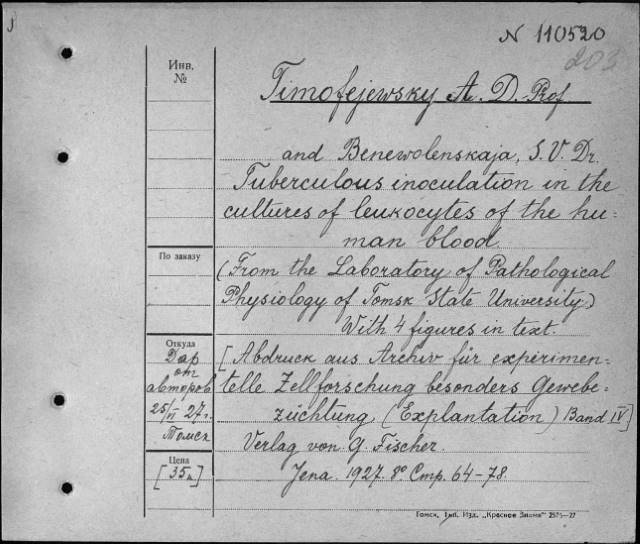 N 110520
203
Инв.
№
Timofejewsky A. D. Prof
and Benewolenskaja, S. V. Dr.
Tuberculous inoculation in the
cultures of leukocytes of the hu-
man blood.
По заказу
(From the Laboratory of Pathological
Physiology of Tomsk State University)
With 4 figures in text.
Откуда
Дар
от
авторов
25/VI 27 г.
Томск
[Abdruck aus Archiv für experimen-
telle Zellforschung besonders Gewebe-
züchtung (Explantation) Band IV]
Verlag von G. Fischer.
Цена
[35 к]
Jena. 1927. 8° Стр. 64-78.
Томск, Тип. Изд. „Красное Знамя" 2575—27